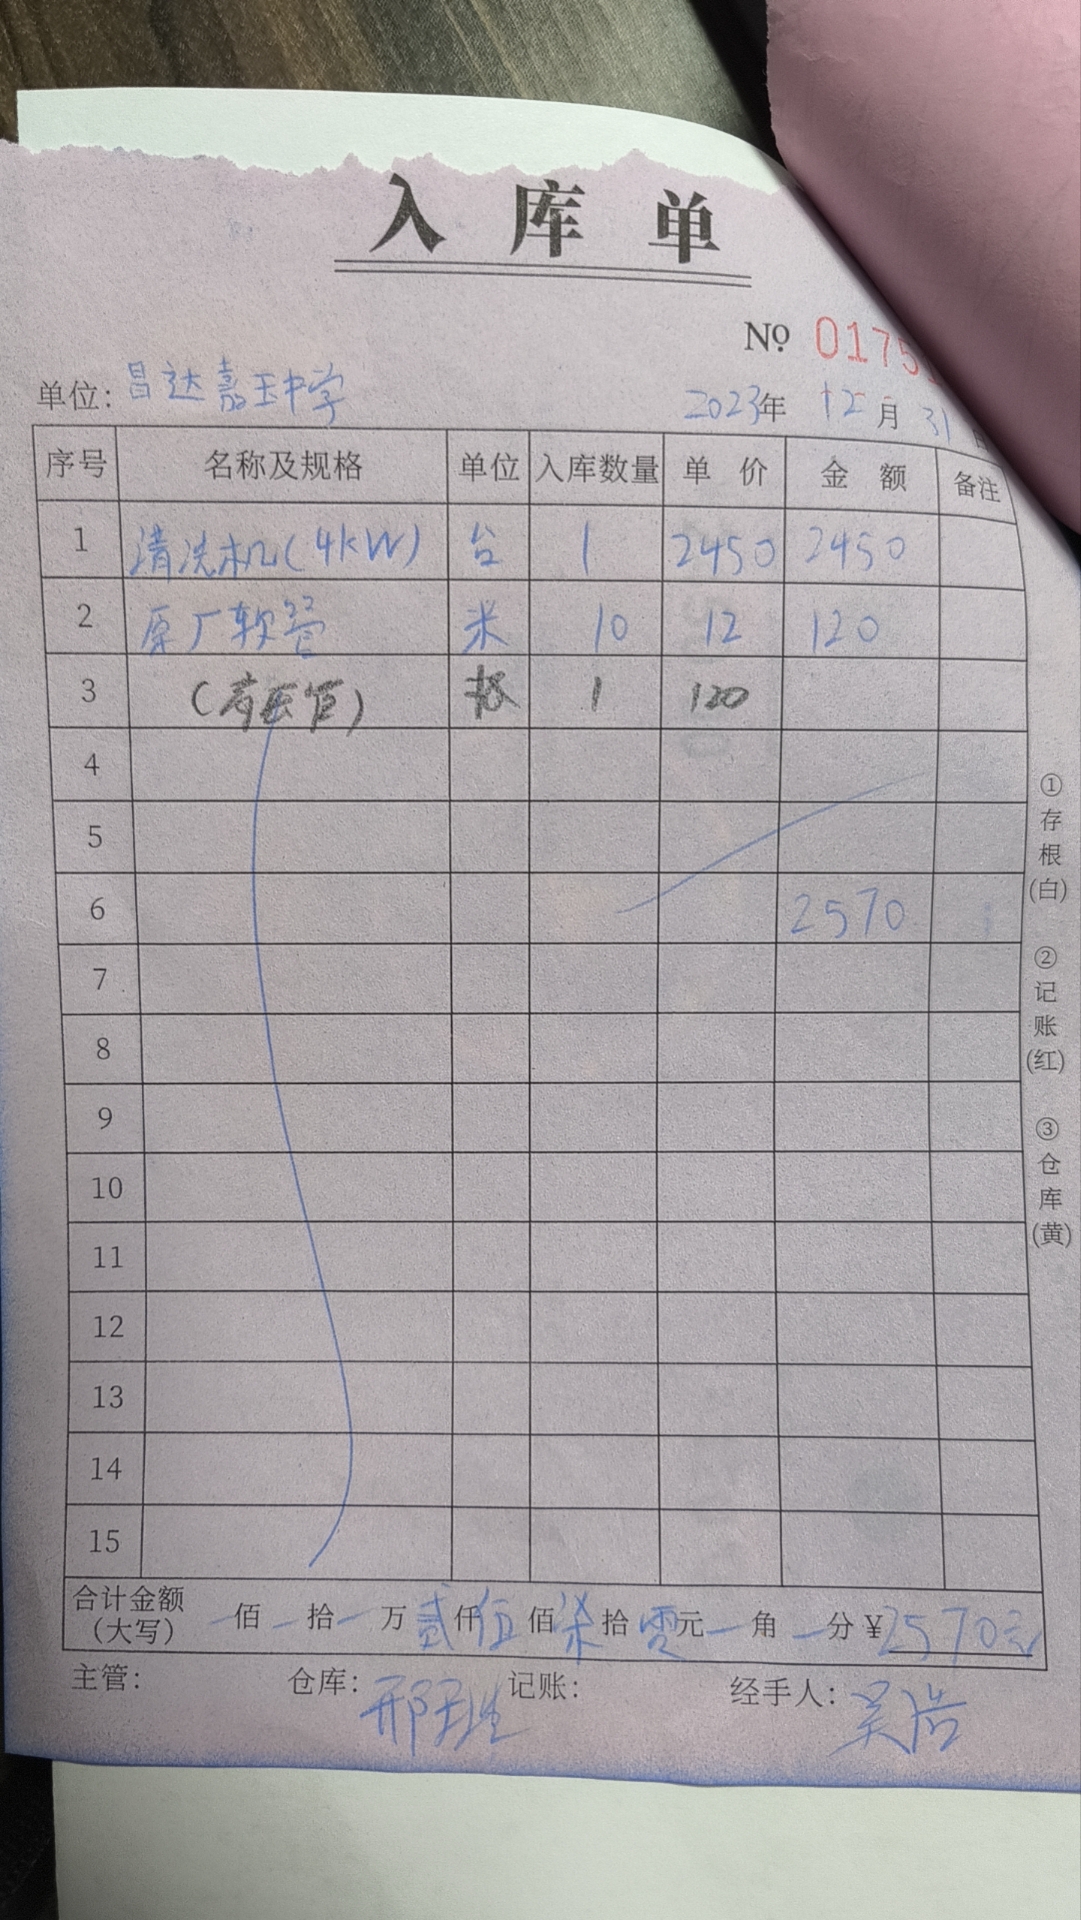 入库单
№ 0175
单位：昌达嘉玉中学 2023年 12月 31
序号 名称及规格 单位 入库数量 单价 金额 备注
1 清洗机(4kW) 台 1 2450 2450
2 原厂软管 米 10 12 120
3 (高压管) 根 1 120
4
5
6 2570
7
8
9
10
11
12
13
14
15
合计金额(大写) 佰 拾 万 贰仟 伍佰 柒拾 零元 角 分 ¥2570元
主管： 仓库： 记账： 经手人：吴浩
①存根(白)
②记账(红)
③仓库(黄)